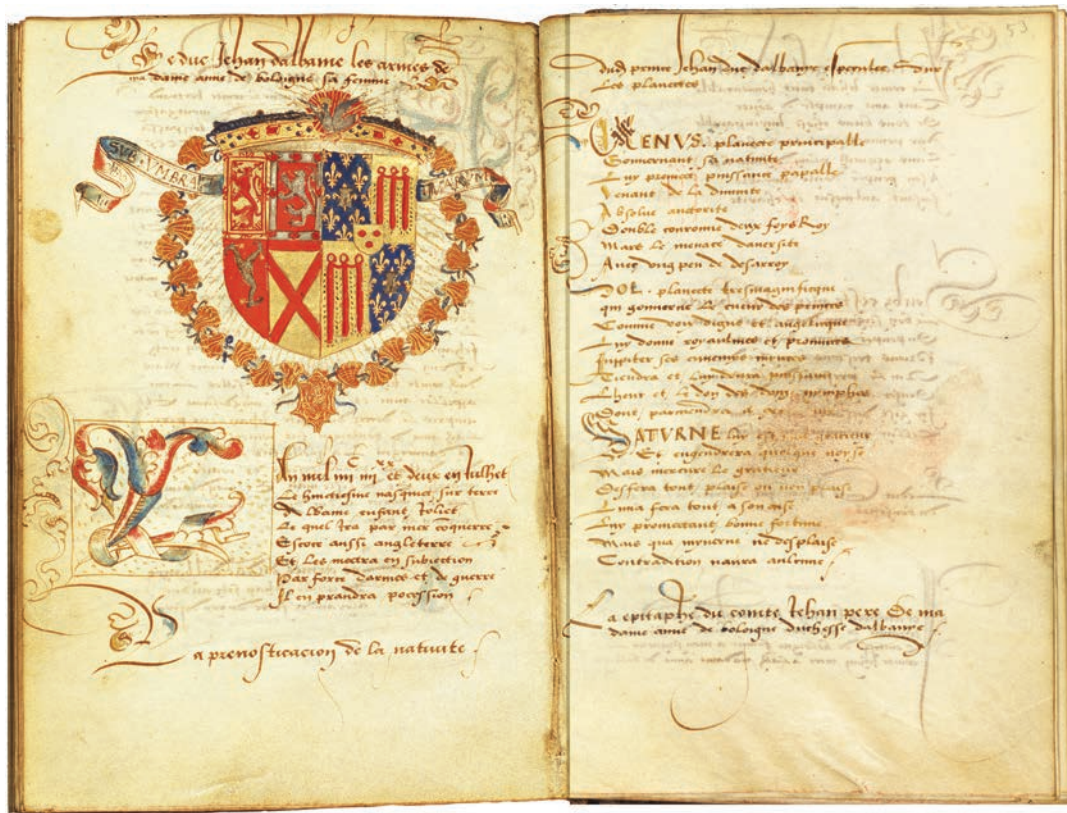 duc Jehan dalbanie les armes de
ma dame anne de boloigne sa femme
SVB VMBRA
TVARVM
An mil iiii iiii et deux en Juilhet
C xx
Le huictiesme nasquit sur terre
Dalbanie enfant Joliet
Le quel Ira par mer conquerre
Escoce aussi angleterre
Et Les mectra en subiection
Par force darmes et de guerre
Il en prandra pocession
La prenosticacion de la nativite
53
dud prince Jehan duc dalbanye
Les planectes
VENVS. planecte principalle
Gouvernant sa nativite
Luy promect puissance papalle
Venant de la divinite
Absolue auctorite
Double couronne deux foys Roy
Mars le menace daversite
Avec ung peu de desarroy
SOL. planecte tresmagnificque
qui gouverne le cueur des princes
Comme voir digne et angelicque
Luy donne royaulmes et provinces
Juppiter ses ennemys
Tiendra et
Lheur et le don des
Dont parviendra a
SATVRNE luy est
Et engendrera quelque noyse
Mais mercure le gratieux
Desfera tout plaise ou non plaise
Luna fera tout a son aise
Luy promectant bonne fortune
Mais qua mynerve ne desplaise
Contradition naura aulcune
La epitaphe du comte Jehan pere De ma
dame anne de boloigne duchesse dalbanye